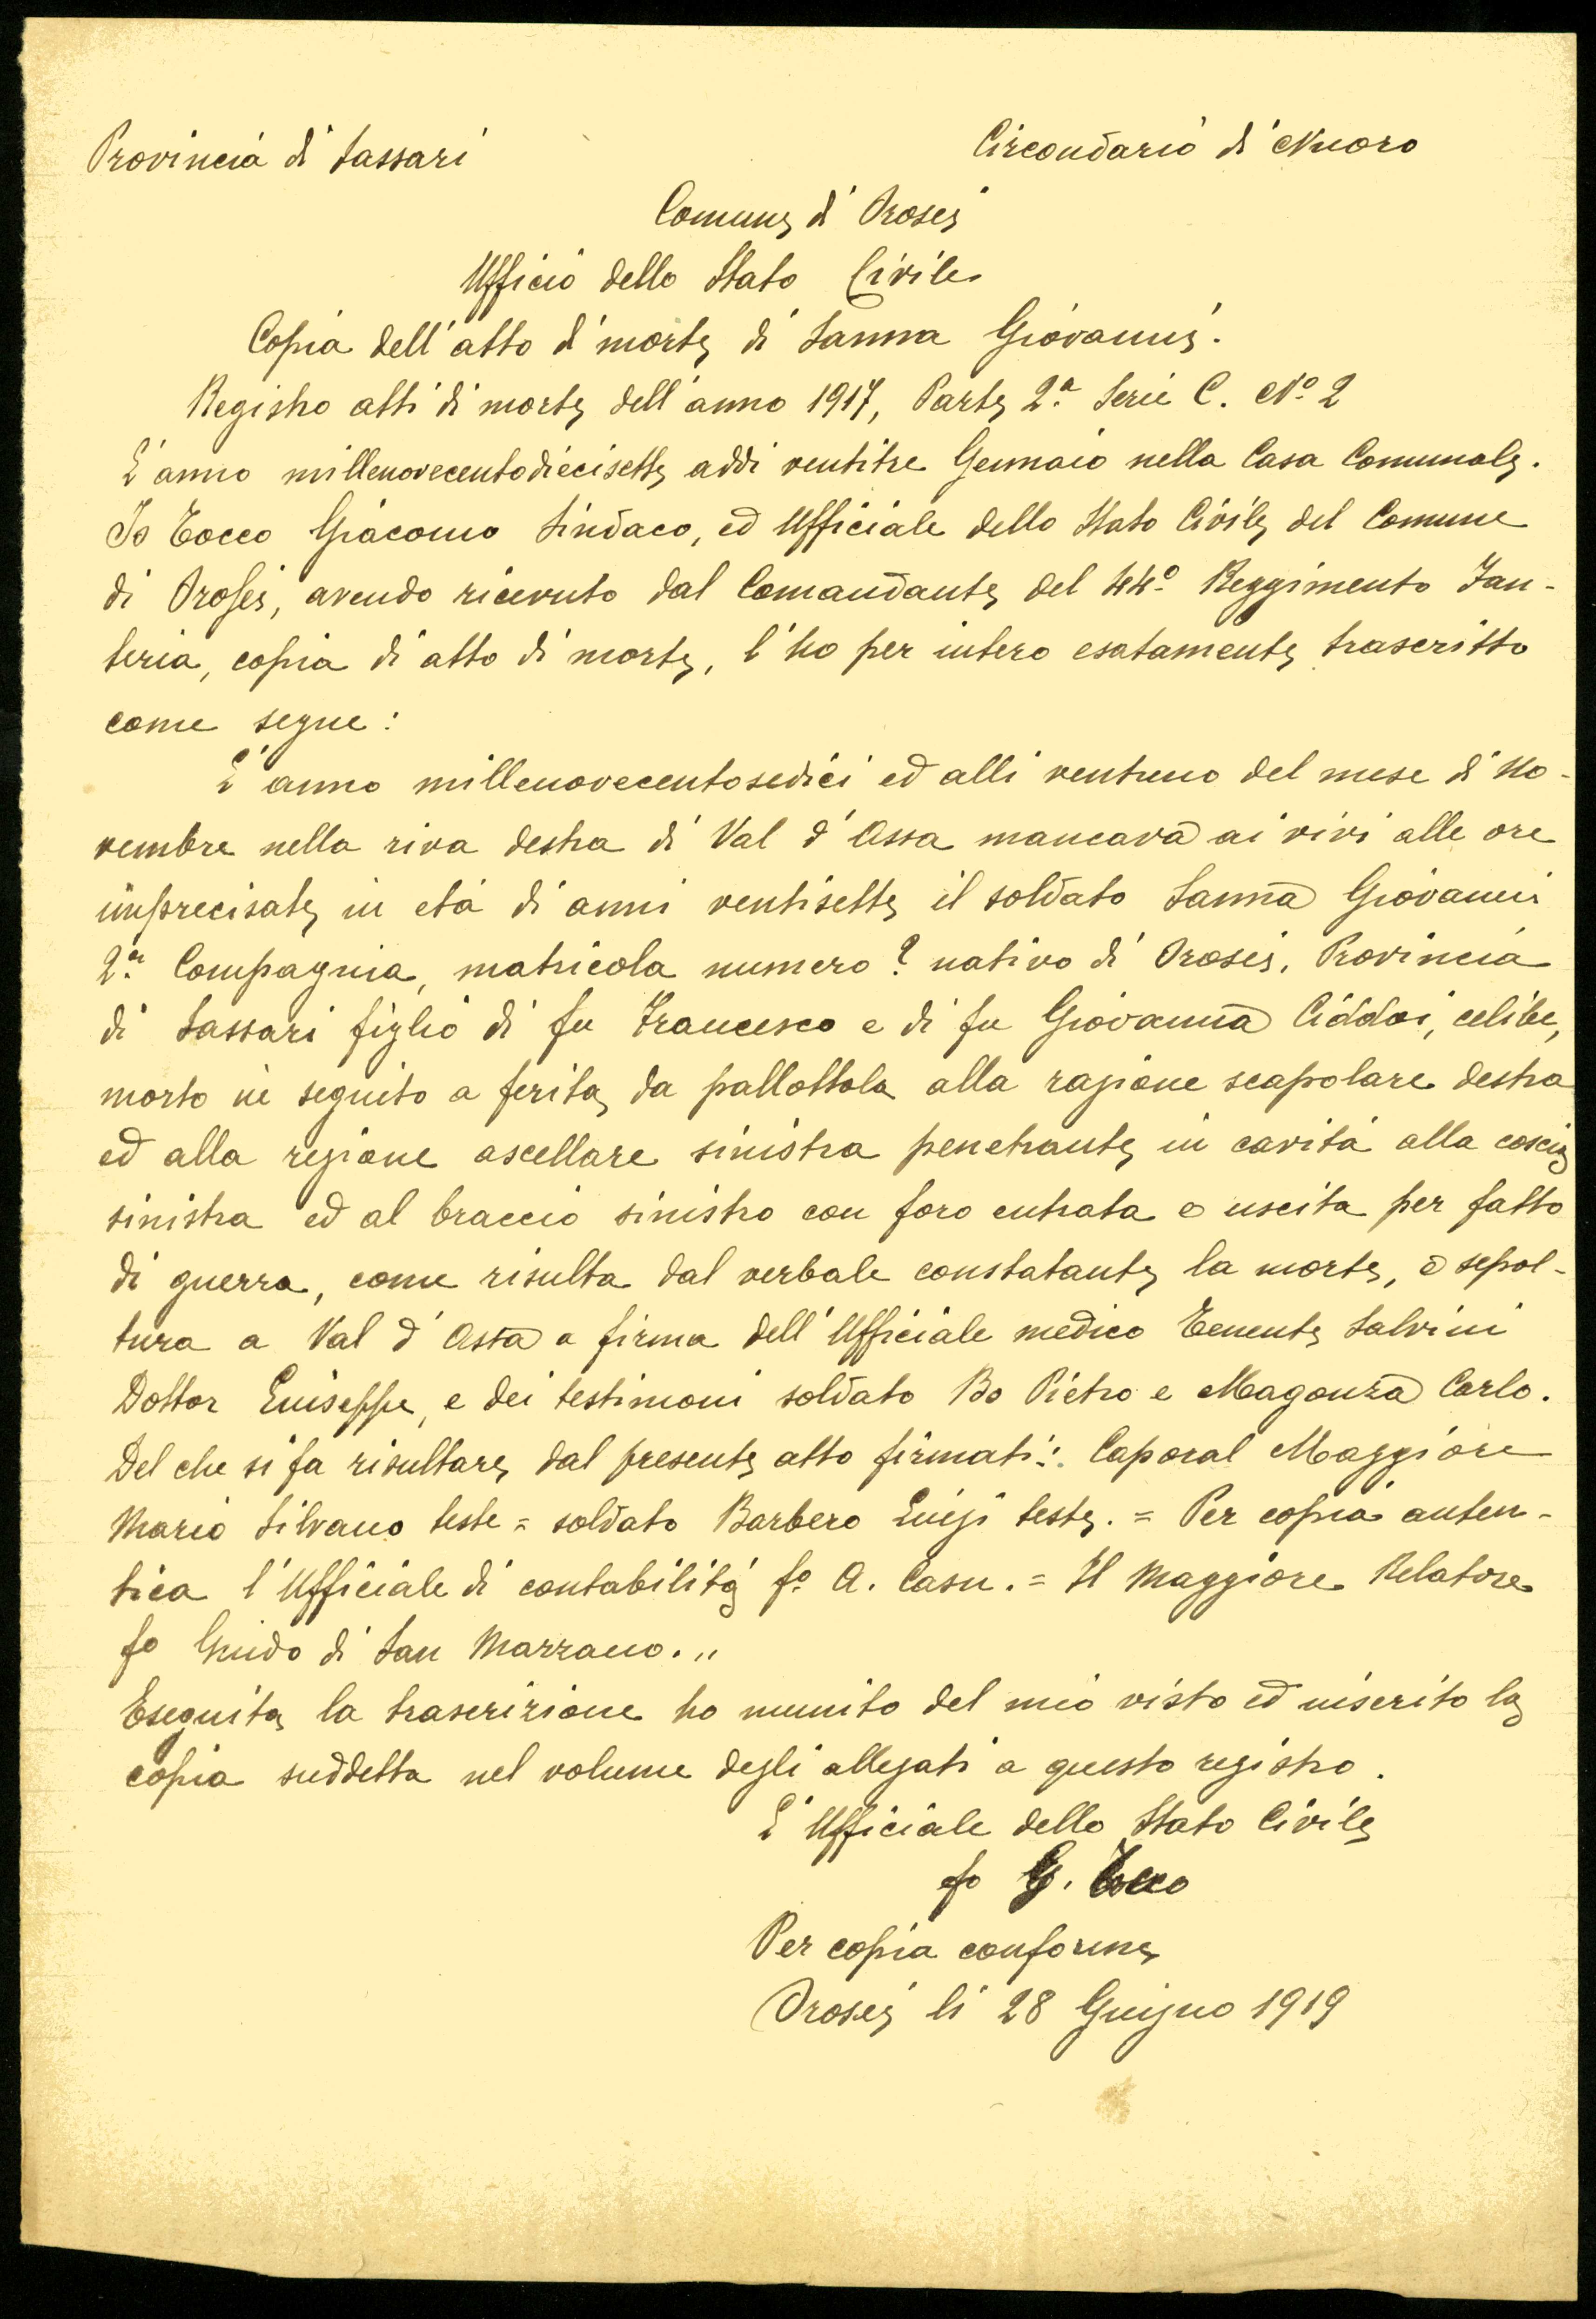 Provincia di Sassari
Circondario di Nuoro
Comune di Orosei
Ufficio dello Stato Civile
Copia dell'atto di morte di Sanna Giovanni.
Registro atti di morte dell'anno 1917, Parte 2ª Serie C. Nº 2
L'anno millenovecentodiecisette addi ventitre Gennaio nella Casa Comunale.
Io Tocco Giacomo Sindaco, ed Ufficiale dello Stato Civile del Comune
di Orosei, avendo ricevuto dal Comandante del 44º Reggimento Fan-
teria, copia di atto di morte, l'ho per intero esatamente trascritto
come segue:
L'anno millenovecentosedici ed alli ventuno del mese di No-
vembre nella riva destra di Val d'Assa mancava ai vivi alle ore
imprecisate in età di anni ventisette il soldato Sanna Giovanni
2ª Compagnia, matricola numero ? nativo di Orosei, Provincia
di Sassari figlio di fu Francesco e di fu Giovanna Ciddoi, celibe,
morto in seguito a ferita da pallottola alla ragione scapolare destra
ed alla regione ascellare sinistra penetrante in cavità alla coscia
sinistra ed al braccio sinistro con foro entrata e uscita per fatto
di guerra, come risulta dal verbale constatante la morte, e sepol-
tura a Val d'Assa a firma dell'Ufficiale medico Tenente Salvini
Dottor Guiseppe, e dei testimoni soldato Bo Pietro e Magonza Carlo.
Del che si fa risultare dal presente atto firmati: Caporal Maggiore
Mario Silvano teste = soldato Barbero Luigi teste. = Per copia auten-
tica l'Ufficiale di contabilità fº A. Casu. = Il Maggiore Relatore
fo Guido di San Marzano. "
Eseguita la trascrizione ho munito del mio visto ed inserito la
copia suddetta nel volume degli allegati a questo registro.
L'Ufficiale dello Stato Civile
fo G. Tocco
Per copia conforme
Orosei li 28 Guigno 1919